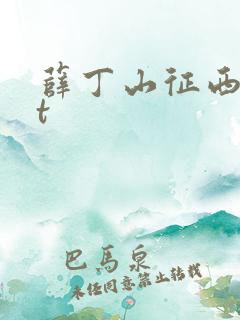 薛丁山征西
t
巴馬泉
未经同意禁止转载